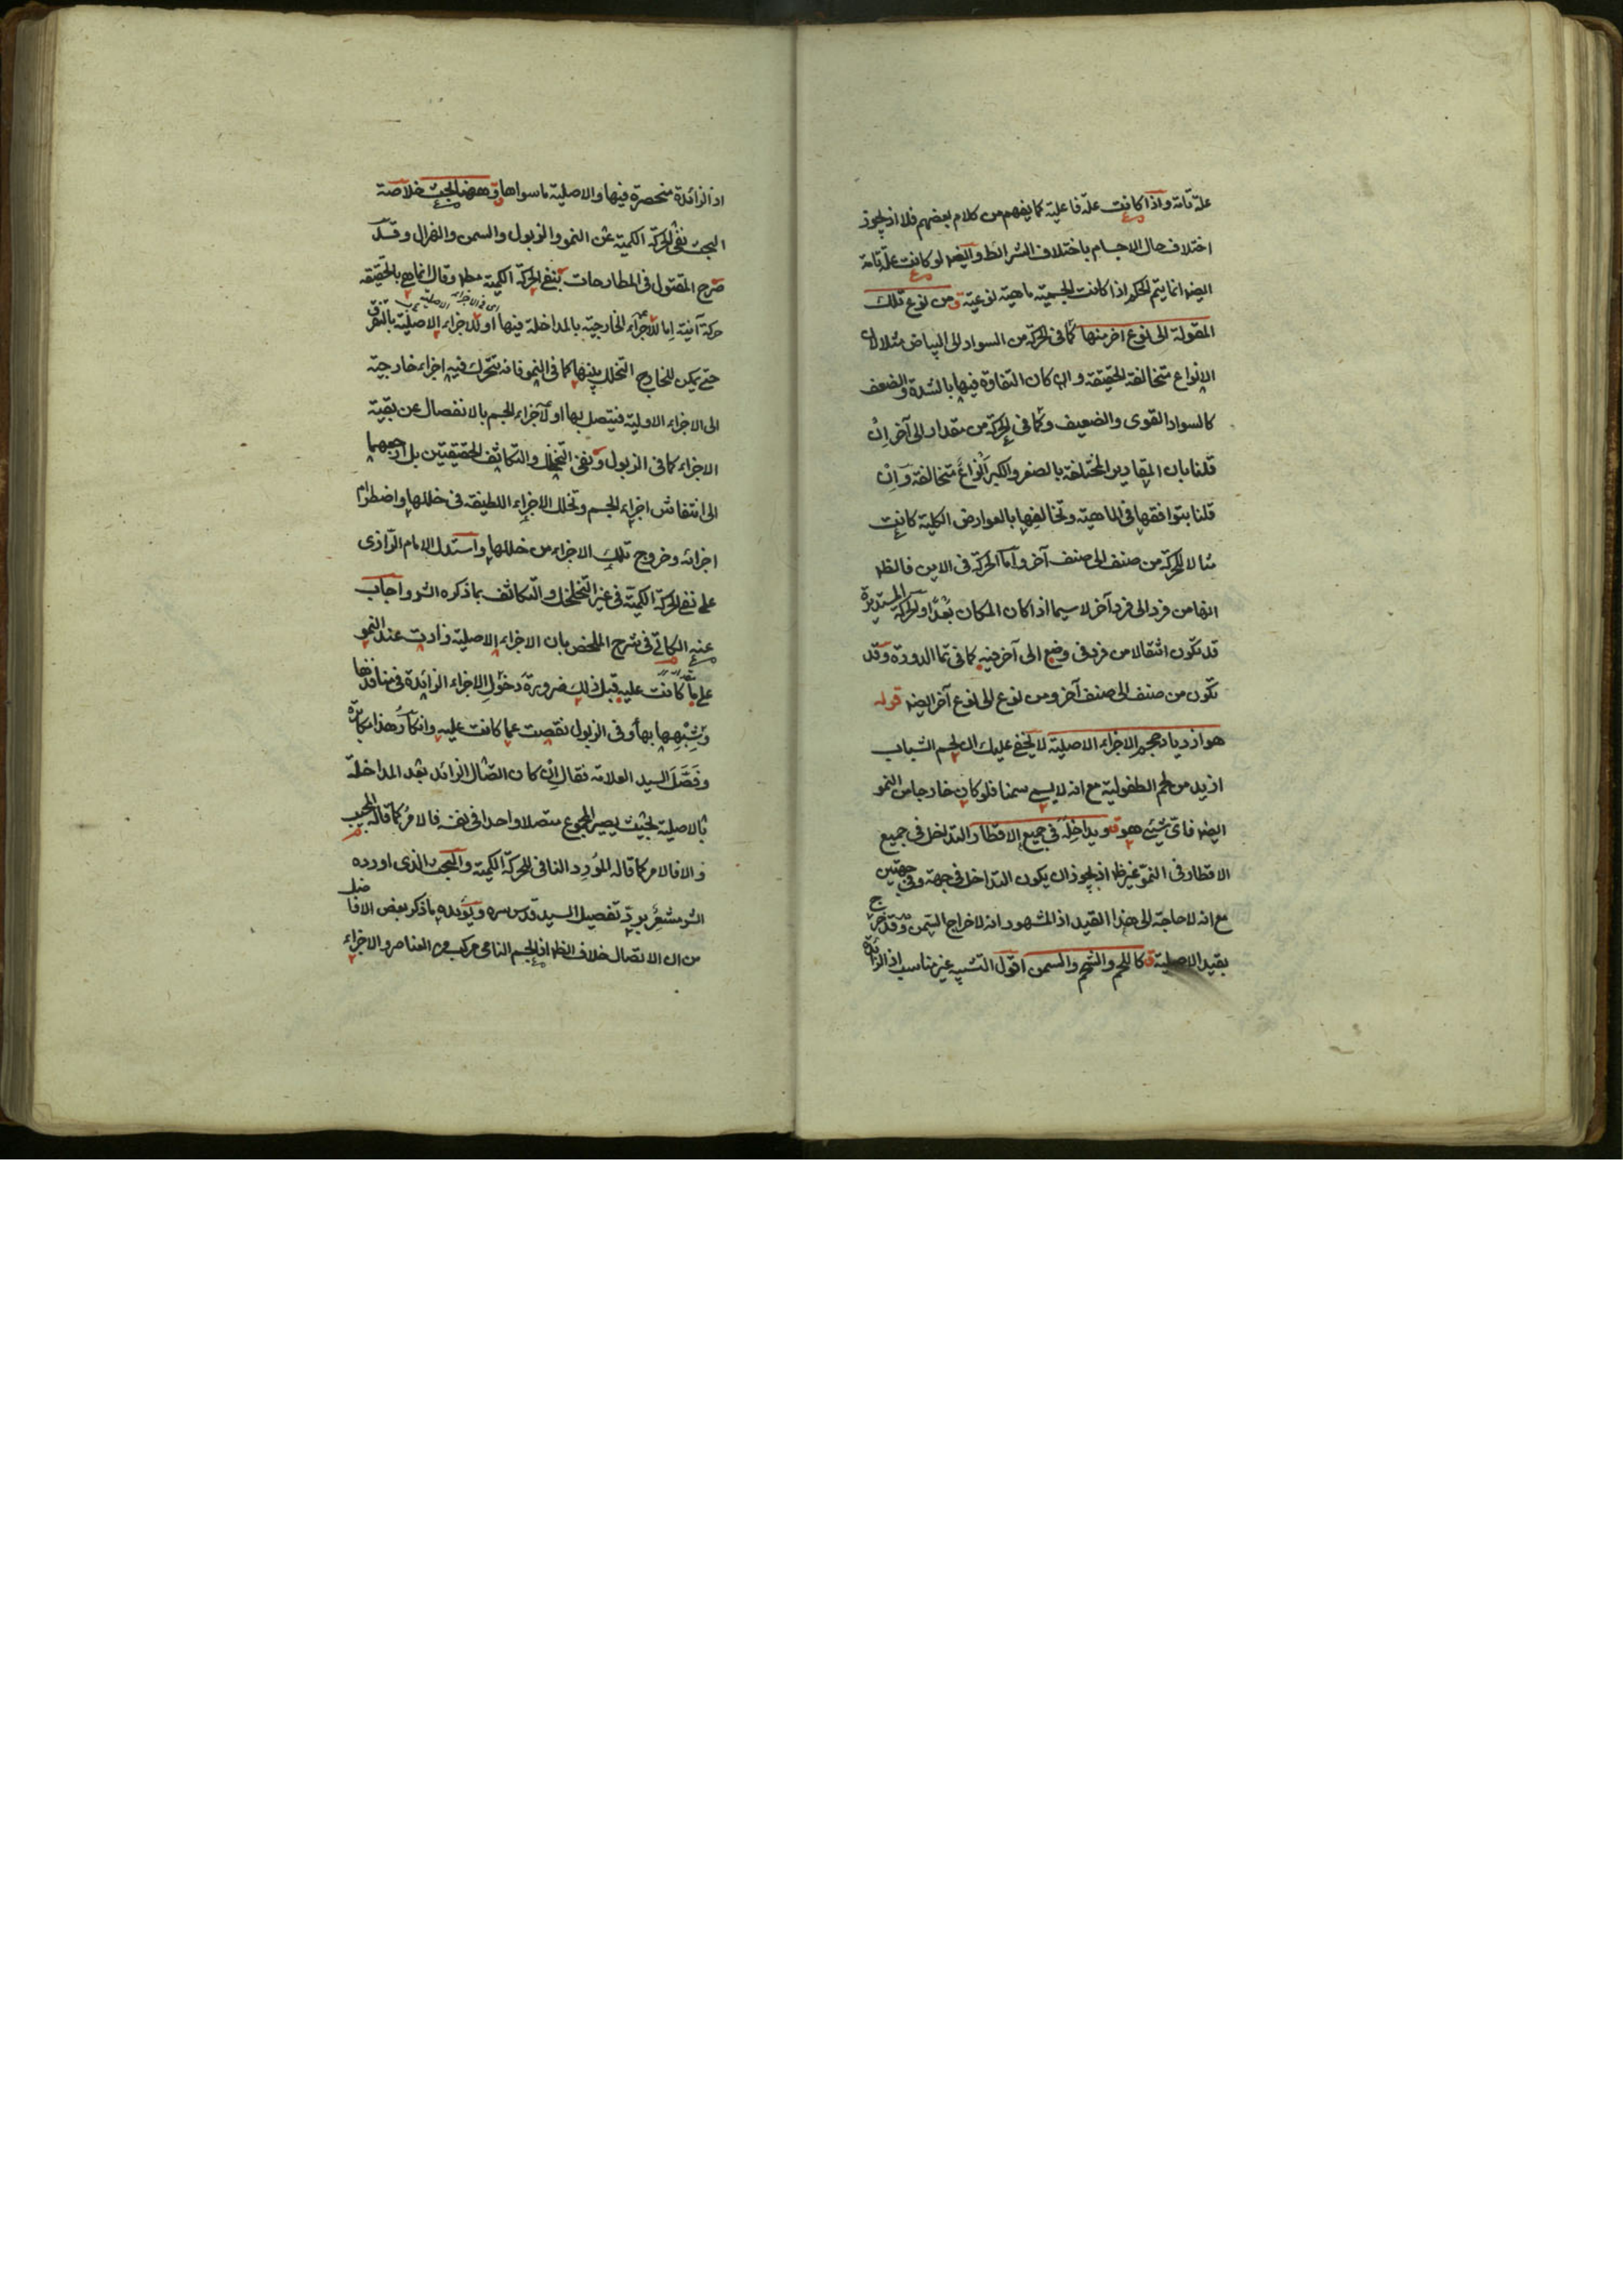 علة تامة واذا كانت علة فاعلية كما يفهم من كلام بعضهم فلا اذ يجوز
اختلاف حال الاجسام باختلاف الشرائط وايضا لو كانت علة تامة
ايضا انما يتم الحكم اذا كانت الجسمية ماهية نوعية ومن نوع تلك
المقولة الى نوع اخر منها كما فى الحركة من السواد الى البياض مثلا لان
الانواع متخالفة الحقيقة وان كان التفاوة فيها بالشدة والضعف
كالسواد القوى والضعيف وكما فى الحركة من مقدار الى آخر ان
قلنا بان المقادير المختلفة بالصغر والكبر انواع متخالفة وان
قلنا بتوافقها فى الماهية وتخالفها بالعوارض الكلية كانت
مثالا للحركة من صنف الى صنف آخر واما الحركة فى الاين فالظ
انها من فرد الى فرد آخر لا سيما اذا كان المكان بعدا والحركة المستديرة
قد تكون انتقالا من فرد فى وضع الى آخر فيه كما فى تما الدورة وقد
تكون من صنف الى صنف آخر ومن نوع الى نوع آخر ايضا قوله
هو ازدياد حجم الاجزاء الاصلية لا يخفى عليك ان لحم الشباب
ازيد من لحم الطفولية مع انه لا يسمى سمنا فلو كان خارجا من النمو
ايضا فاى شيئ هو قوله ويداخله فى جميع الاقطار التداخل فى جميع
الاقطار فى النمو غير ظ اذ يجوز ان يكون التداخل فى جهة وفى جهتين
مع انه لا حاجة الى هذا القيد اذ المشهور انه لاخراج السمن وقد خرج
بقيد الاصلية قوله كاللحم والشحم والسمن اقول التشبيه غير مناسب اذ الزائدة
اذ الزائدة منحصرة فيها والاصلية ما سواها وههنا بحث خلاصة
البحث نفى الحركة الكمية عن النمو والذبول والسمن والهزال وقد
صرح المقتول فى المطارحات بنفى الحركة الكمية مطلقا وقال انما هى بالحقيقة
اى فى الاجزاء الاصلية
حركة آينية اما للاجزاء الخارجية بالمداخلة فيها او للاجزاء الاصلية بالتفرق
حتى يمكن للخارج التخلل بينها كما فى النمو فانه يتحرك فيه اجزاء خارجية
الى الاجزاء الاولية فيتصل بها او لاجزاء الجسم بالانفصال عن بقية
الاجزاء كما فى الذبول ونفى التخلخل والتكاثف الحقيقيين بل ارجعهما
الى انتفاش اجزاء الجسم وتخلل الاجزاء اللطيفة فى خللها واضطرام
اجزائه وخروج تلك الاجزاء من خللها واستدل الامام الرازى
على نفى الحركة الكمية فى غير التخلخل والتكاثف بما ذكره الشر واجاب
عنه الكاتبى فى شرح الملخص بان الاجزاء الاصلية زادت عند النمو
على ما كانت عليه قبل ذلك ضرورة دخول الاجزاء الزائدة فى منافذها
وتشبهها بها وفى الذبول نقصت عما كانت عليه وانكار هذا مكابرة
وفصل السيد العلامة فقال ان كان اتصال الزائد بعد المداخلة
بالاصلية بحيث يصير المجموع متصلا واحدا فى نفسه فالامر كما قاله المجيب
والا فالامر كما قاله المورد النافى للحركة الكمية والبحث الذى اورده
الشر مشعر برد تفصيل السيد قدس سره ويؤيده ما ذكر بعض الافاضل
من ان الاتصال خلاف الظ اذ الجسم النامى مركب من العناصر والاجزاء